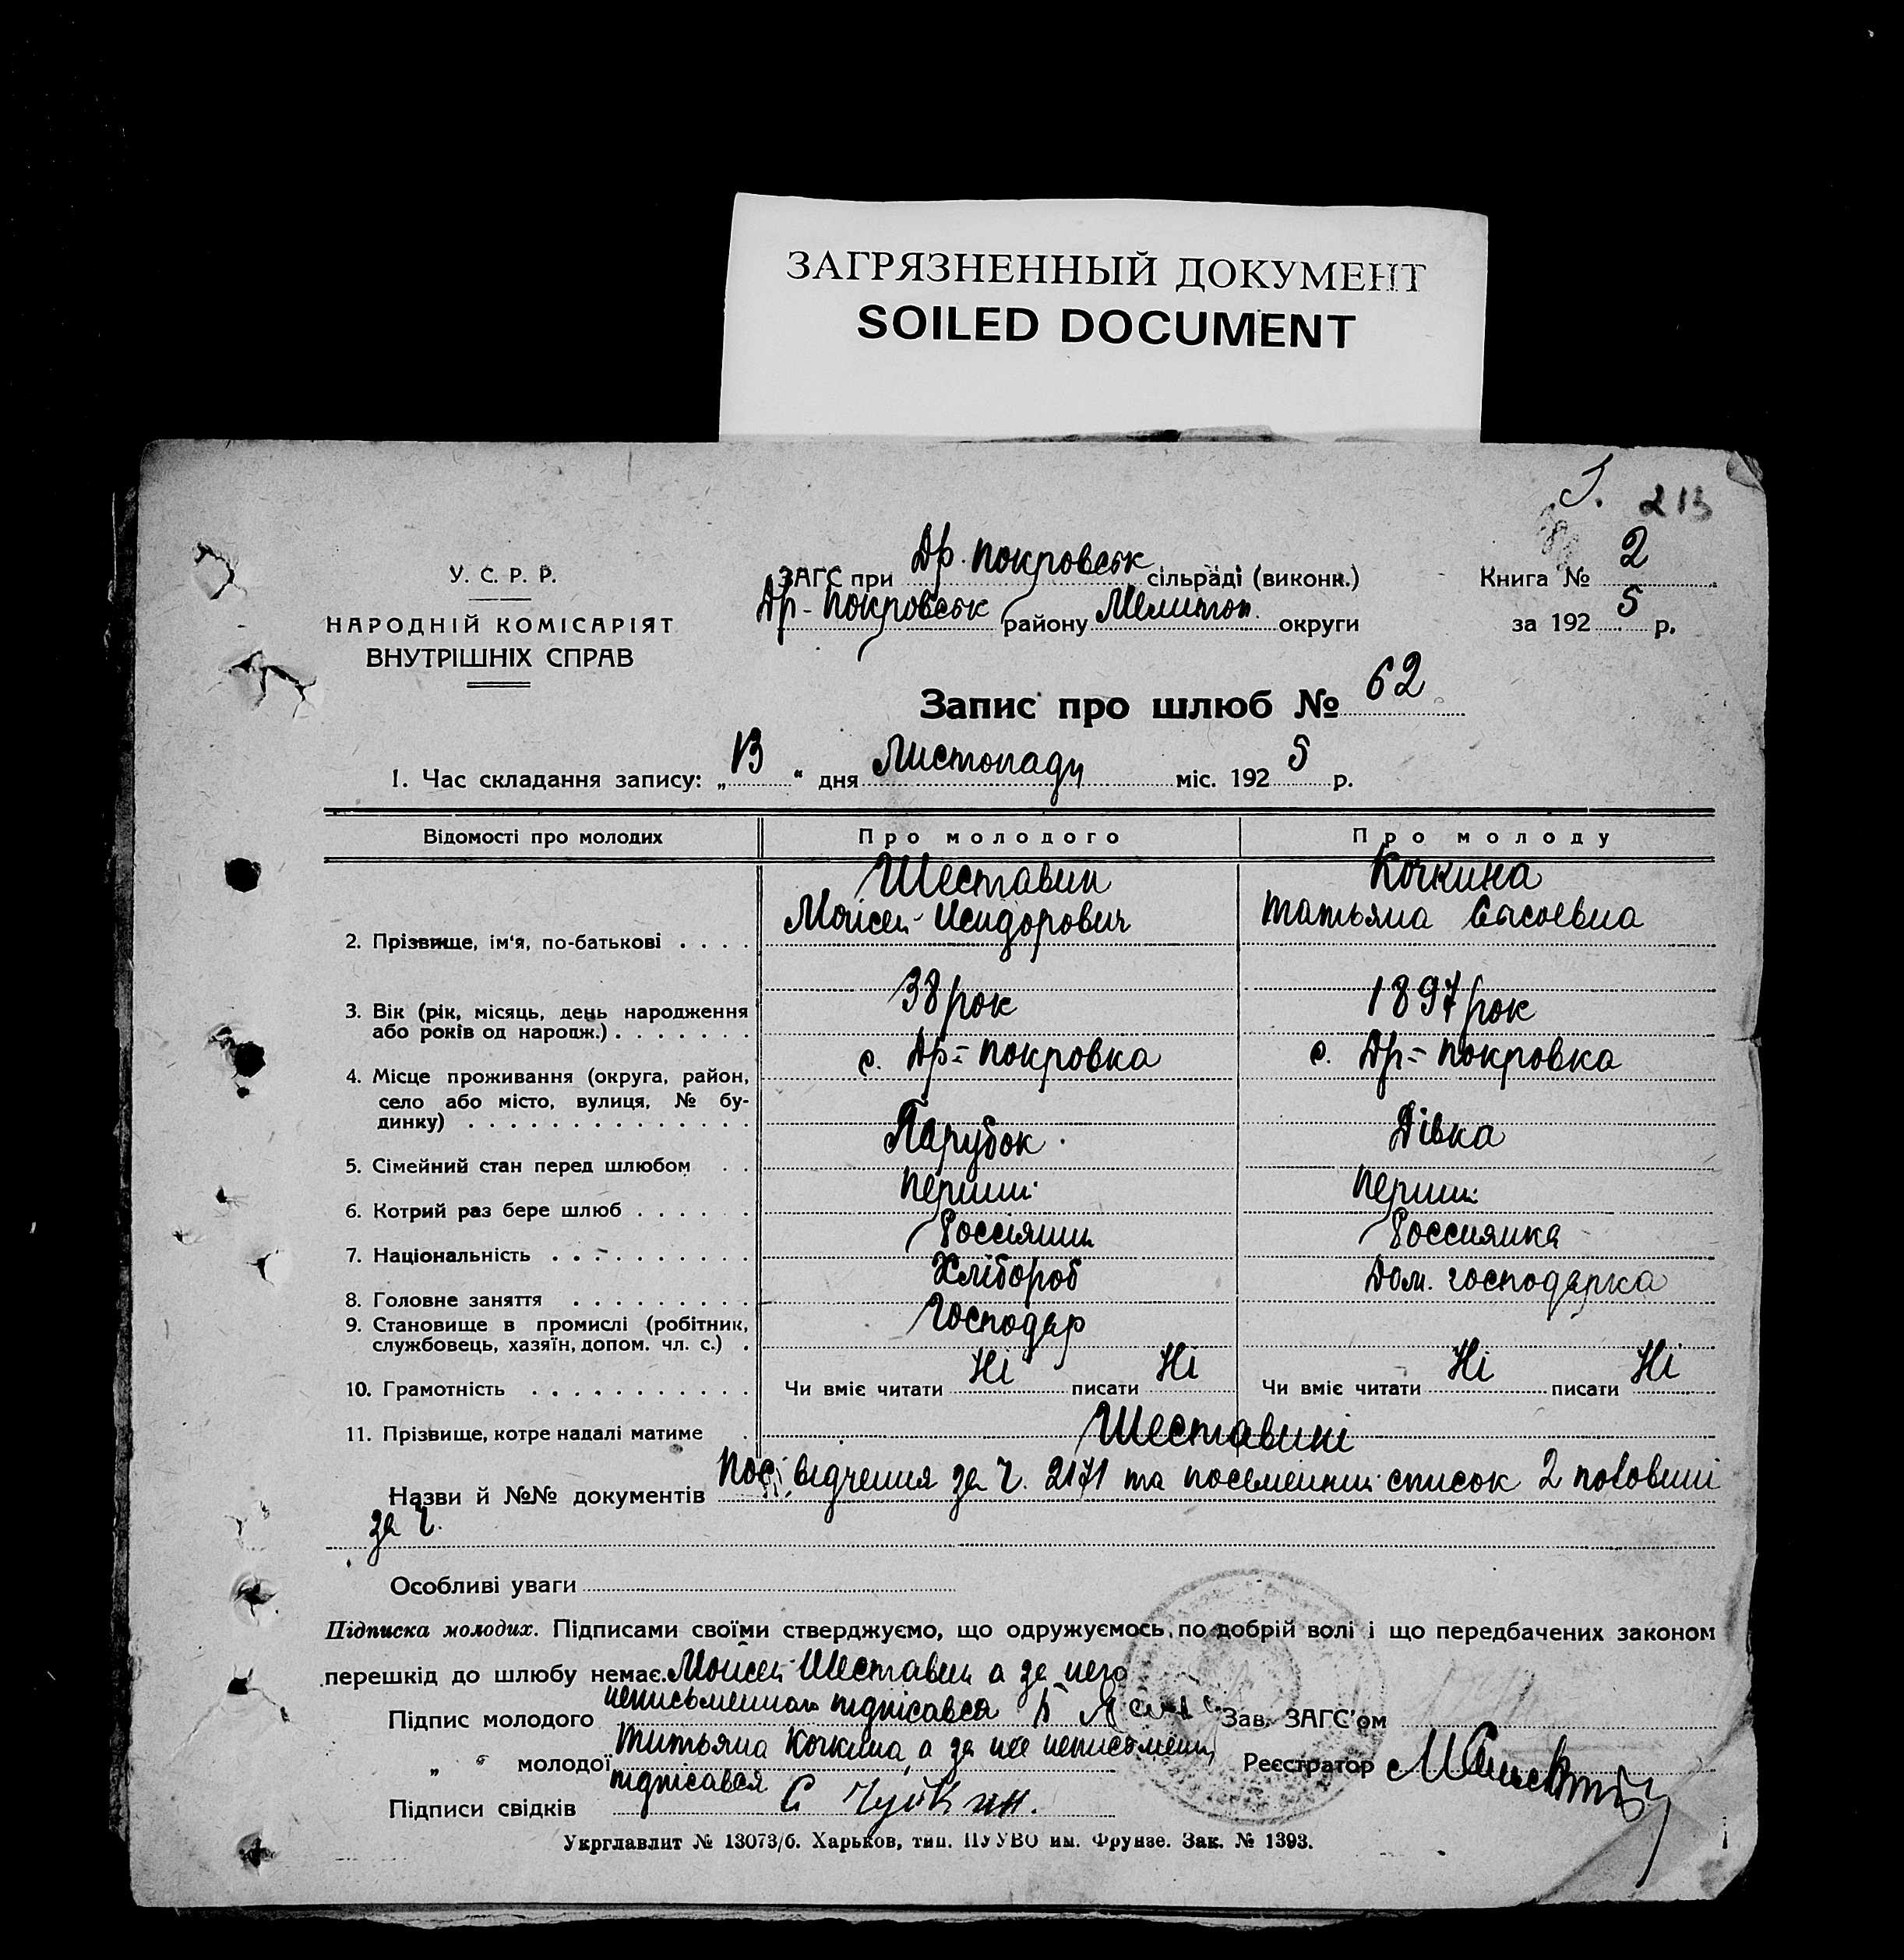 ЗАГРЯЗНЕННЫЙ ДОКУМЕНТ
SOILED DOCUMENT
213
У. С. Р. Р.
НАРОДНІЙ КОМІСАРІЯТ
ВНУТРІШНІХ СПРАВ
ЗАГС при Др. Покровськ сільраді (виконк.)
Др-Покровськ району Мелитоп. округи
Книга № 2
за 1925 р.
Запис про шлюб № 62
1. Час складання запису: „13“ дня Листопаду міс. 1925 р.
Відомості про молодих Про молодого Про молоду
Шеставин Кочкина
2. Прізвище, ім'я, по-батькові Мойсей Исидорович Татьяна Сысоевна
3. Вік (рік, місяць, день народження або років од народж.) 38 рок 1897 рок
4. Місце проживання (округа, район, село або місто, вулиця, № будинку) с. Др=Покровка с. Др=Покровка
5. Сімейний стан перед шлюбом Парубок Дівка
6. Котрий раз бере шлюб Перший Перший
7. Національність Россіянин Россиянка
8. Головне заняття Хлібороб Дом. господарка
9. Становище в промислі (робітник, службовець, хазяїн, допом. чл. с.) Господар
10. Грамотність Чи вміє читати Ні писати Ні Чи вміє читати Ні писати Ні
11. Прізвище, котре надалі матиме Шеставині
Назви й №№ документів Посвідчення за ч. 2171 та посемейний список 2
за ч.
Особливі уваги
Підписка молодих. Підписами своїми стверджуємо, що одружуємось по добрій волі і що передбачених законом
перешкід до шлюбу немає. Мойсей Шеставин а за него
Підпис молодого неписьменного підпісався
Зав. ЗАГС'ом
„ „ молодої Татьяна Кочкина, а за нее неписьмену
Реєстратор
підпісався С Чуйкин.
Підписи свідків
Укрглавлит № 13073/б. Харьков, тип. ПУУВО им. Фрунзе. Зак. № 1393.